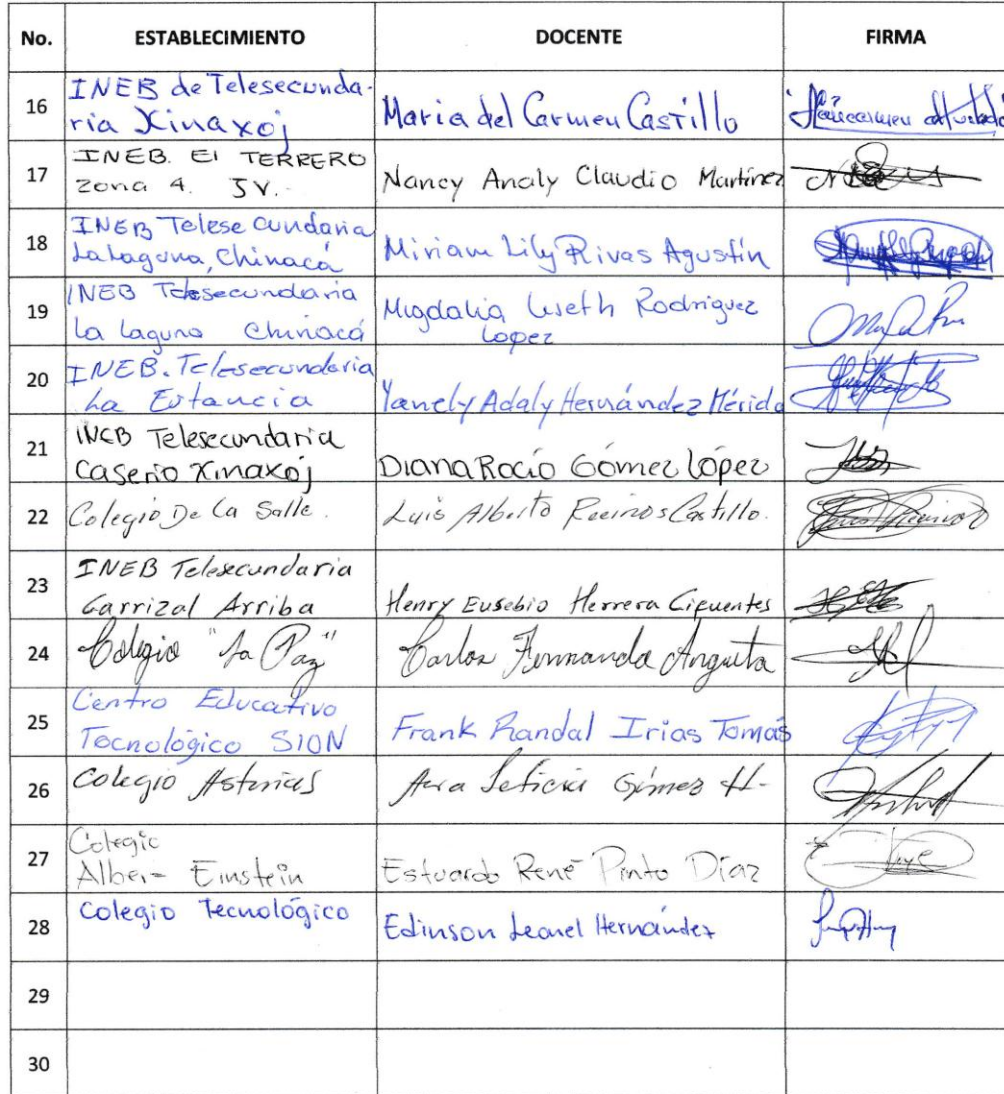 No. ESTABLECIMIENTO DOCENTE FIRMA
16 INEB de Telesecunda-
ria Xinaxoj Maria del Carmen Castillo
17 INEB. El TERRERO
zona 4. JV. Nancy Analy Claudio Martínez
18 INEB Telesecundaria
La Laguna, Chinacá Miriam Lily Rivas Agustín
19 INEB Telesecundaria Migdalia Liseth Rodriguez
La Laguna Chinacá Lopez
20 INEB. Telesecundaria
La Estancia Yanely Adaly Hernández Mérida
21 INEB Telesecundaria
Caserio Xinaxoj Diana Rocío Gómez López
22 Colegio De La Salle. Luis Alberto Recinos Castillo.
23 INEB Telesecundaria
Carrizal Arriba Henry Eusebio Herrera Cifuentes
24 Colegio "La Paz" Carlos Fernando
25 Centro Educativo
Tecnológico SION Frank Randal Irias Tomás
26 Colegio Asturias Aura Leticia Gómez H-
27 Colegio
Einstein Estuardo René Pinto Díaz
28 Colegio Tecnológico Edinson Leonel Hernández
29
30